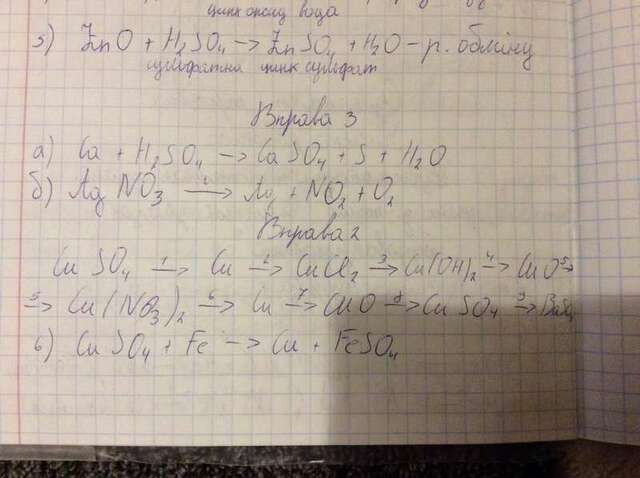 цинк оксид вода
5) ZnO + H2SO4 → ZnSO4 + H2O – р. обміну
сульфатна цинк сульфат
Вправа 3
а) Ca + H2SO4 → CaSO4 + S + H2O
б) AgNO3 → Ag + NO2 + O2
Вправа 2
CuSO4 1→ Cu 2→ CuCl2 3→ Cu(OH)2 4→ CuO 5→
5→ Cu(NO3)2 6→ Cu 7→ CuO 8→ CuSO4 9→ BaSO4
6) CuSO4 + Fe → Cu + FeSO4